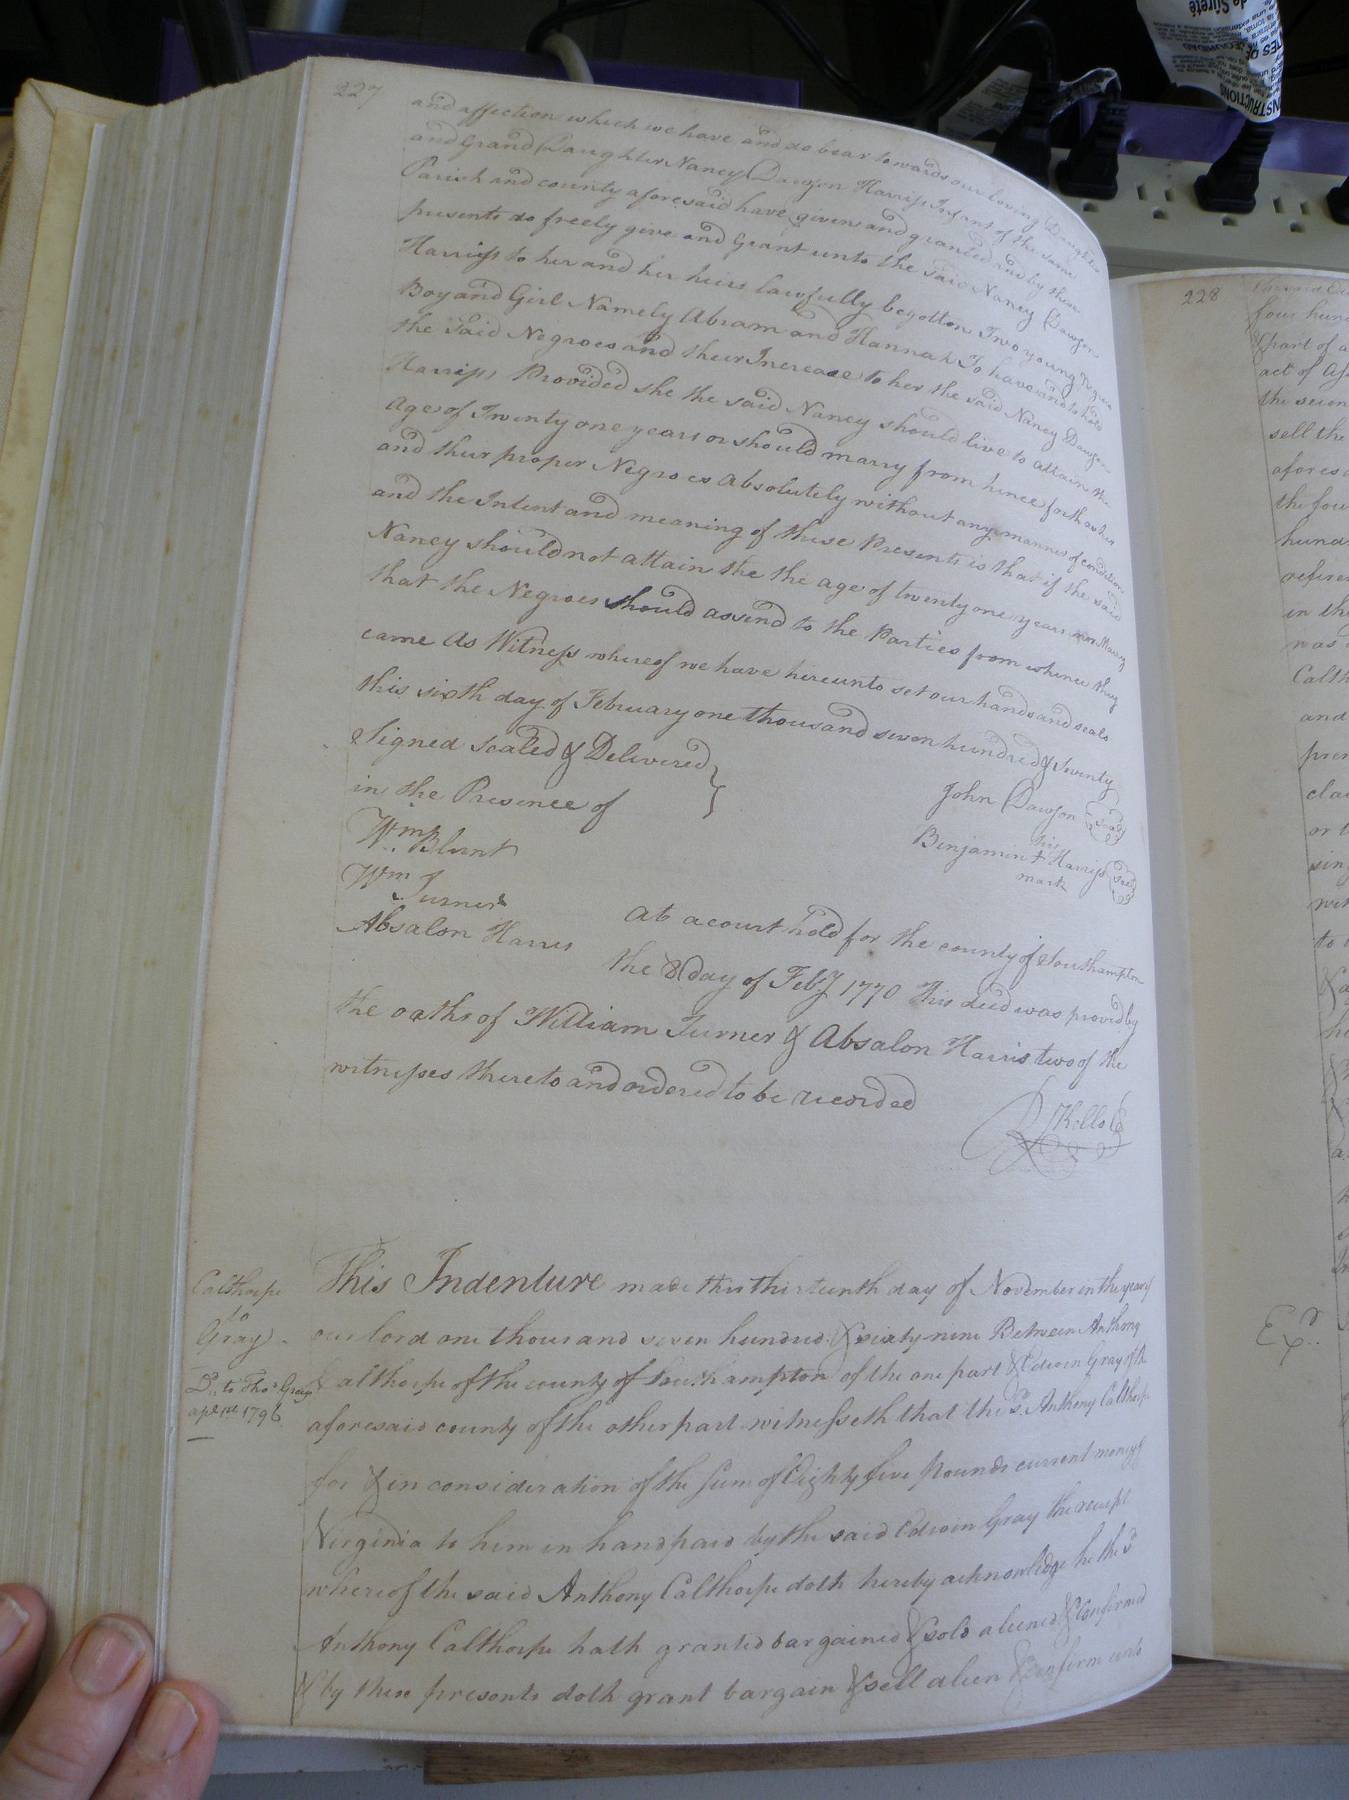 227
and affection which we have and do bear towards our loving Daughter
and Grand Daughter Nancy Dawson Harriss Infant of the same
Parish and county aforesaid have given and granted and by these
presents do freely give and Grant unto the said Nancy Dawson
Harriss to her and her heirs lawfully begotten Two young Negroes
Boy and Girl Namely Abram and Hannah To have and to hold
the Said Negroes and their Increase to her the said Nancy Dawson
Harriss Provided she the said Nancy should live to attain the
age of Twenty one years or should marry from hence forth as her
and their proper Negroes Absolutely without any manner of condition
and the Intent and meaning of these Presents is that if the said
Nancy should not attain the the age of twenty one years nor Marry
that the Negroes should assend to the Parties from whence they
came As Witness whereof we have hereunto set our hands and seals
this sixth day of February one thousand seven hundred & seventy
Signed sealed & Delivered
in the Presence of
John Dawson seal
Wm. Blunt
his
Benjamin + Harriss seal
mark
Wm Turner
Absalon Harris
At a court held for the county of Southampton
the 8 day of Feby 1770 This deed was proved by
the oaths of William Turner & Absalon Harris two of the
witnesses thereto and ordered to be recorded
R Kello C
Calthorpe
to
Gray
Dd. to Thos Gray
apl 1st 1796
This Indenture made this thirteenth day of November in the year of
our lord one thousand seven hundred & sixty nine Between Anthony
Calthorpe of the county of Southampton of the one part & Edwin Gray of the
aforesaid county of the other part witnesseth that the sd. Anthony Calthorpe
for & in consideration of the Sum of Eighty five pounds current money of
Virginia to him in hand paid by the said Edwin Gray the receipt
whereof the said Anthony Calthorpe doth hereby acknowledge he the sd
Anthony Calthorpe hath granted bargained & sold aliened & Confirmed
& by these presents doth grant bargain & sell alien & confirm unto
228
four hun
part of a
act of Ass
the seven
sell the
afores
the fou
hund
refere
in the
was
Calth
and
pre
cla
or t
sing
wit
to
Exd.